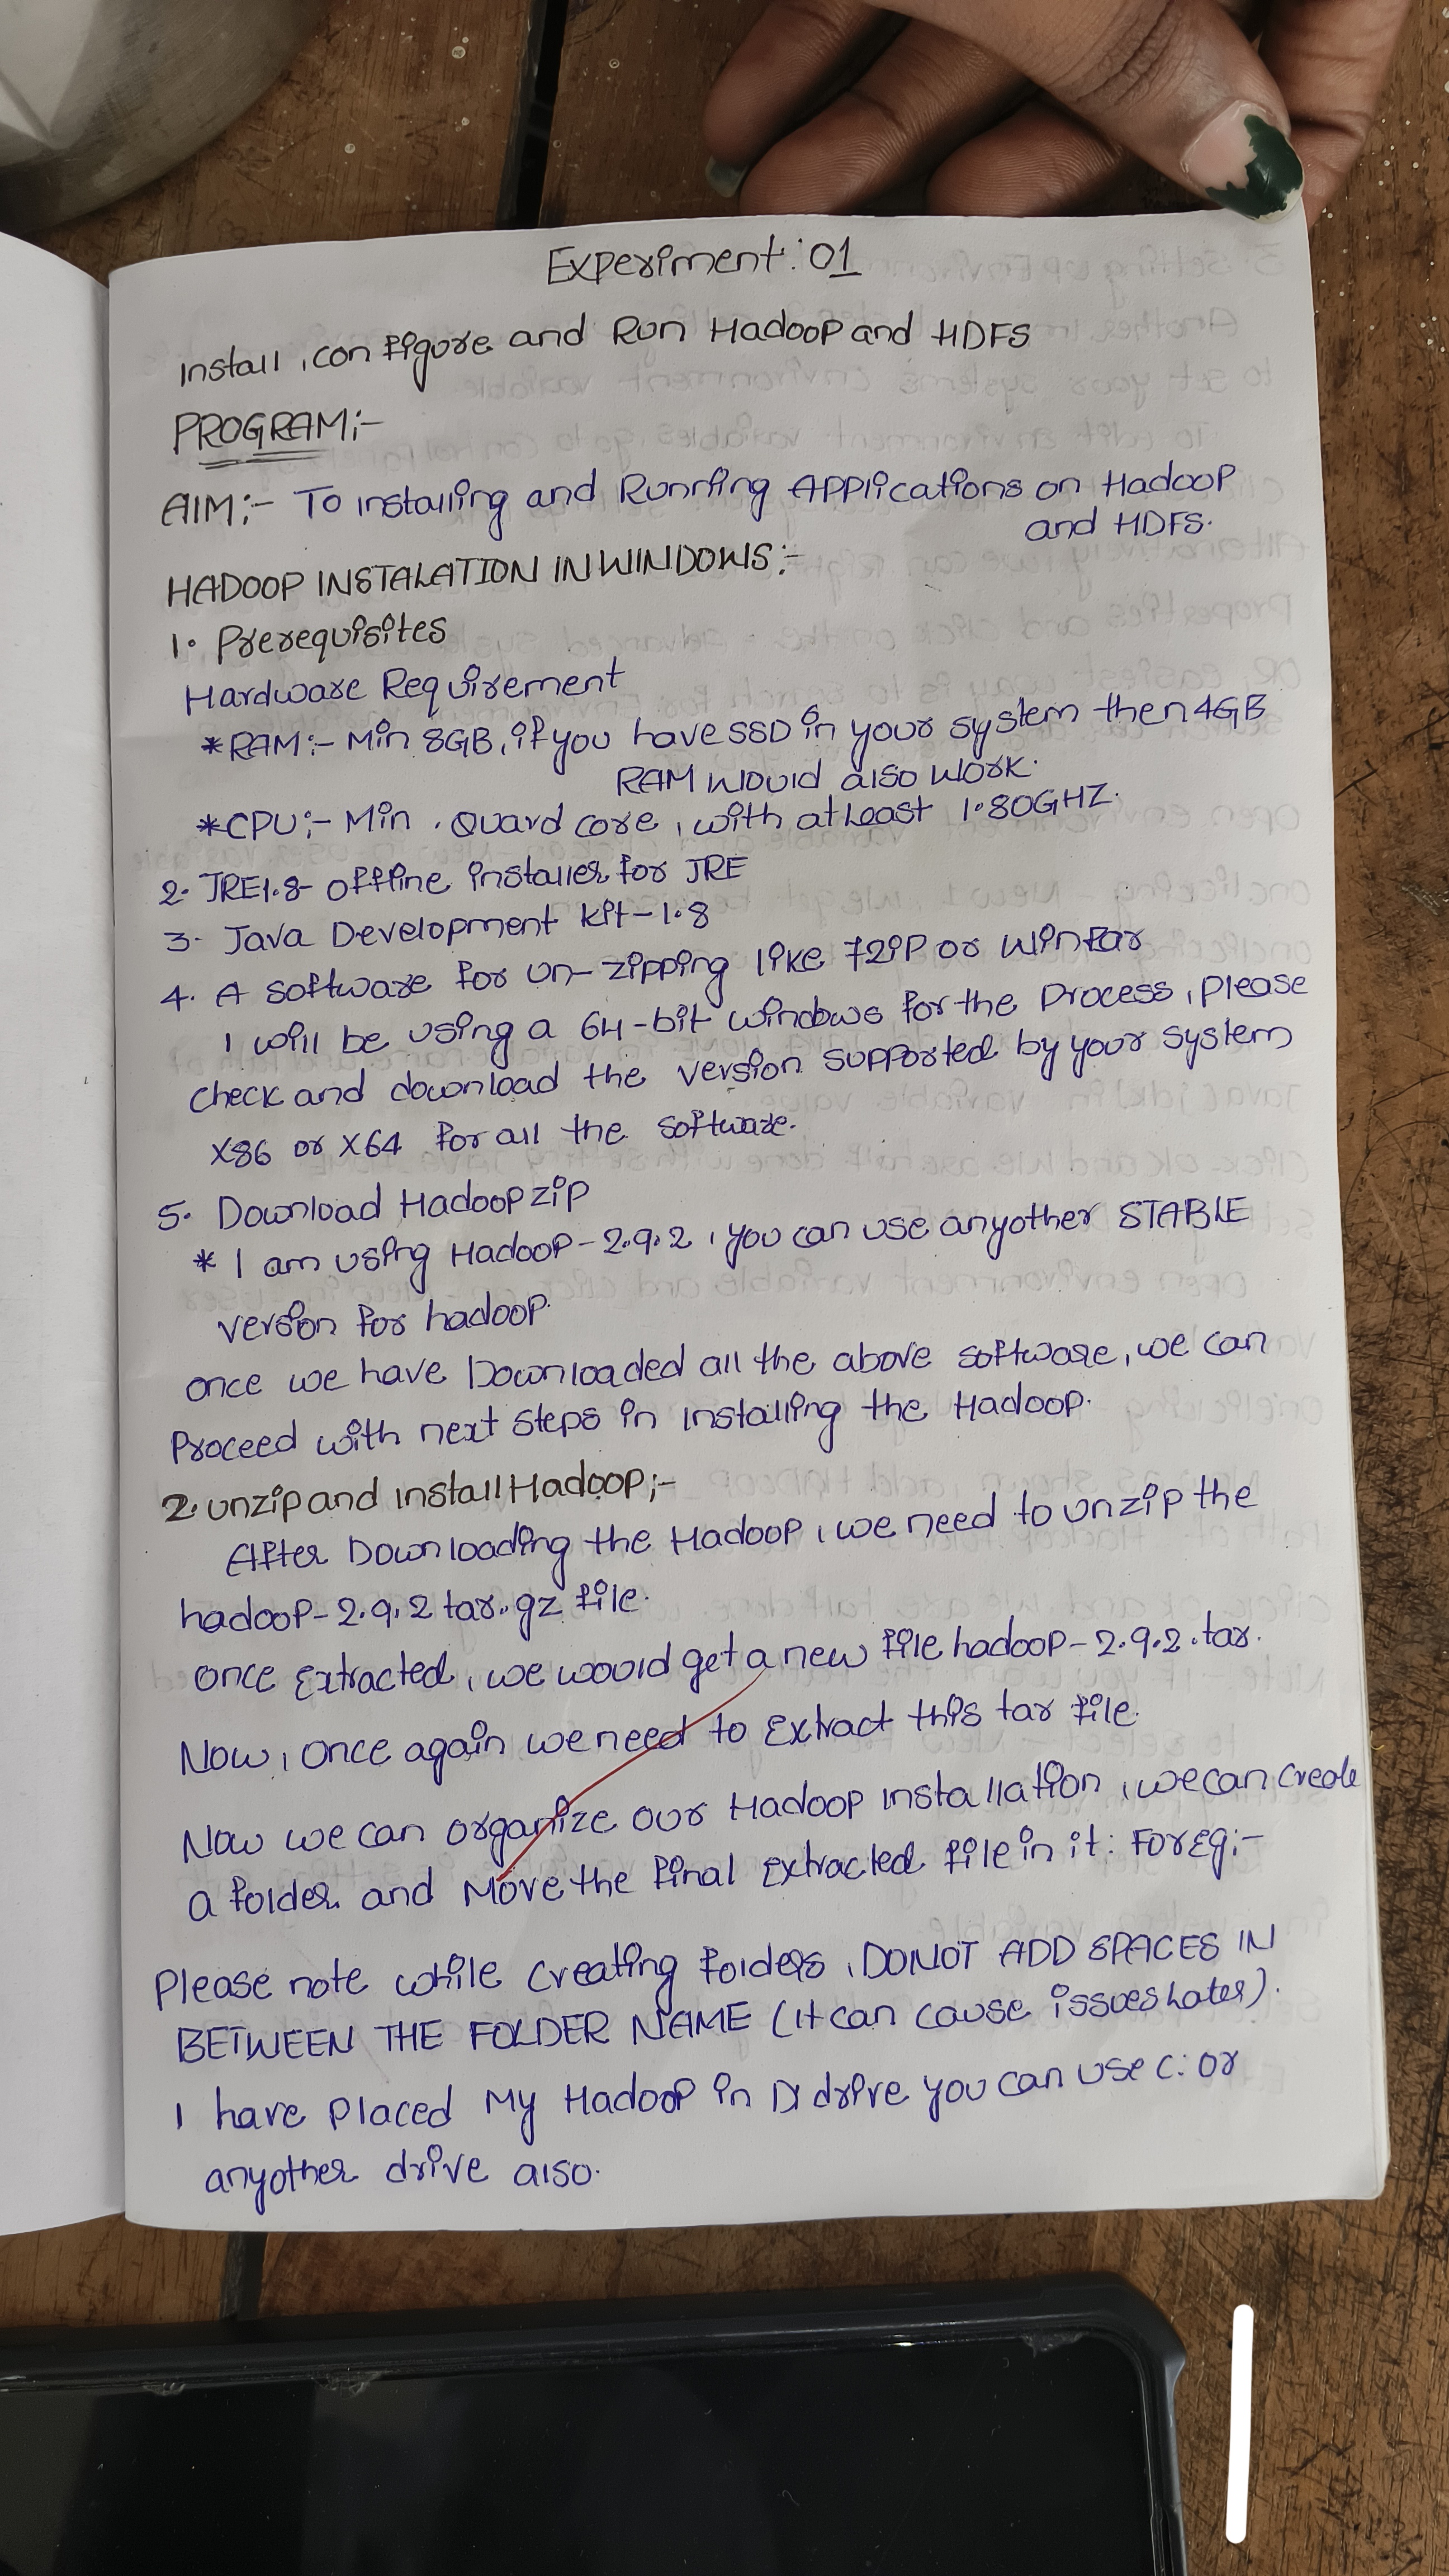 Experiment: 01
Install, configure and Run Hadoop and HDFS
PROGRAM:-
AIM:- To installing and Running Applications on Hadoop
and HDFS.
HADOOP INSTALATION IN WINDOWS:-
1. Prerequisites
Hardware Requirement
* RAM:- Min 8GB, if you have SSD in your system then 4GB
RAM would also work.
* CPU:- Min . Quard core, with atleast 1.80GHZ.
2. JRE1.8- offline installer for JRE
3. Java Development kit-1.8
4. A software for un-zipping like 7zip or winrar
I will be using a 64-bit windows for the process, please
check and download the version supported by your system
X86 or X64 for all the software.
5. Download Hadoop zip
* I am using Hadoop-2.9.2, you can use anyother STABLE
version for hadoop.
once we have Downloaded all the above software, we can
proceed with next steps in installing the Hadoop.
2. unzip and install Hadoop;-
After Downloading the Hadoop, we need to unzip the
hadoop-2.9.2 tar.gz file.
once extracted, we would get a new file hadoop-2.9.2.tar.
Now, once again we need to Extract this tar file.
Now we can organize our Hadoop installation, we can create
a folder and Move the final extracted file in it: For Eg:-
Please note while creating folders, DONOT ADD SPACES IN
BETWEEN THE FOLDER NAME (it can cause issues later).
I have placed My Hadoop in D: drive you can use C: or
anyother drive also.